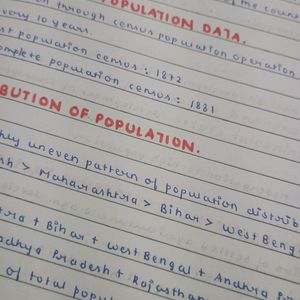 of the coun
OPULATION DATA.
through census population operation
very 10 years.
st population census : 1872
omplete population census : 1881
BUTION OF POPULATION.
hly uneven pattern of population distrib
sh > Maharashtra > Bihar > West Beng
tra + Bihar + West Bengal + Andhra P
adhya Pradesh + Rajasthan
of total popul